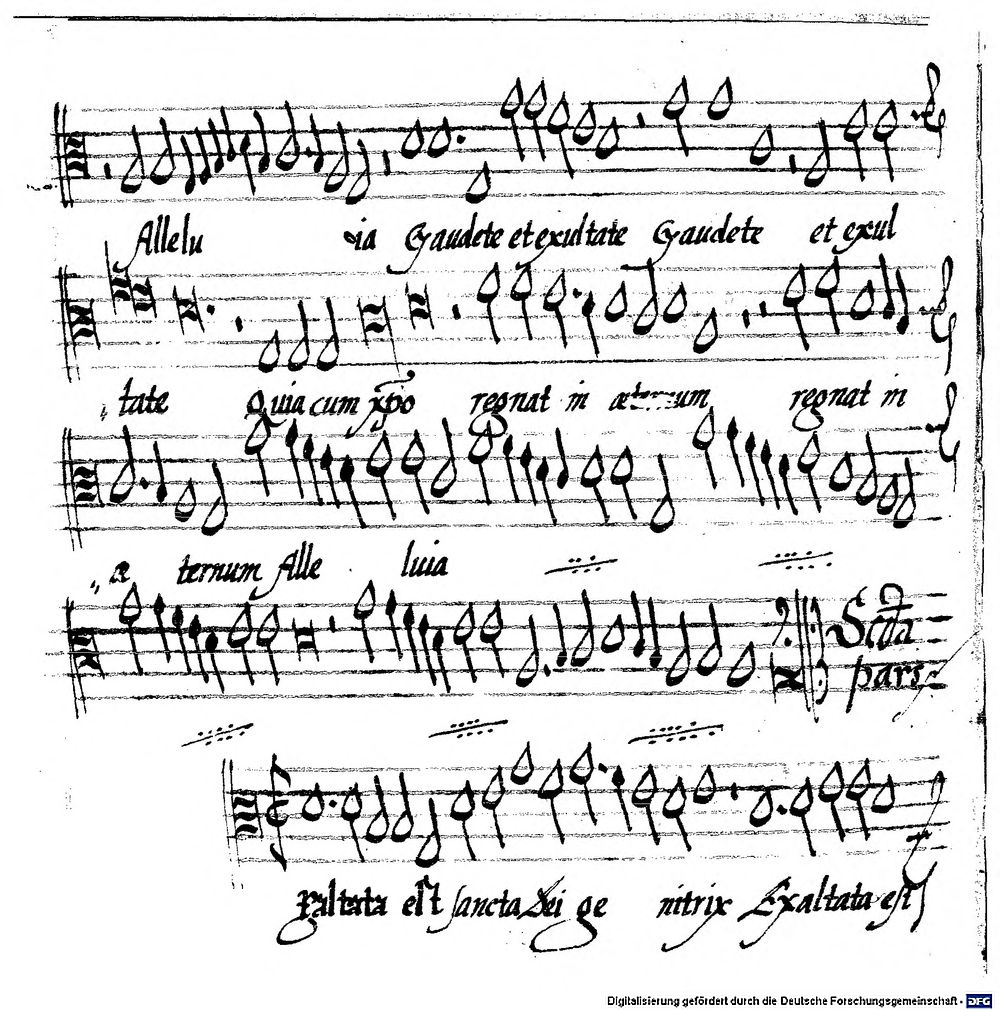 Allelu ia Gaudete et exultate Gaudete et exul
tate Quia cum xp̄o regnat in æternum regnat in
æ ternum Alle luia
Scđa
pars
Exaltata est sancta Dei ge nitrix Exaltata est
Digitalisierung gefördert durch die Deutsche Forschungsgemeinschaft - DFG